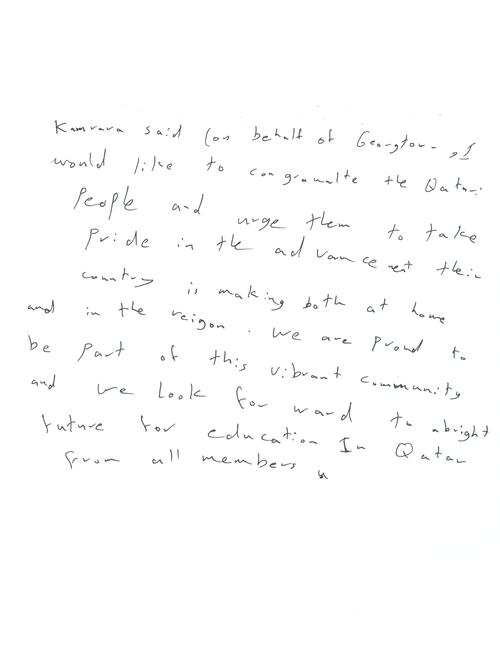 Kamrava said (on behalf of Georgetown, I
would like to congranulte the Qatari
People and urge them to take
Pride in the advancement their
country is making both at home
and in the reigon. We are Proud to
be Part of this vibrant community
and we look for ward to abright
future for education In Qatar
from all members "